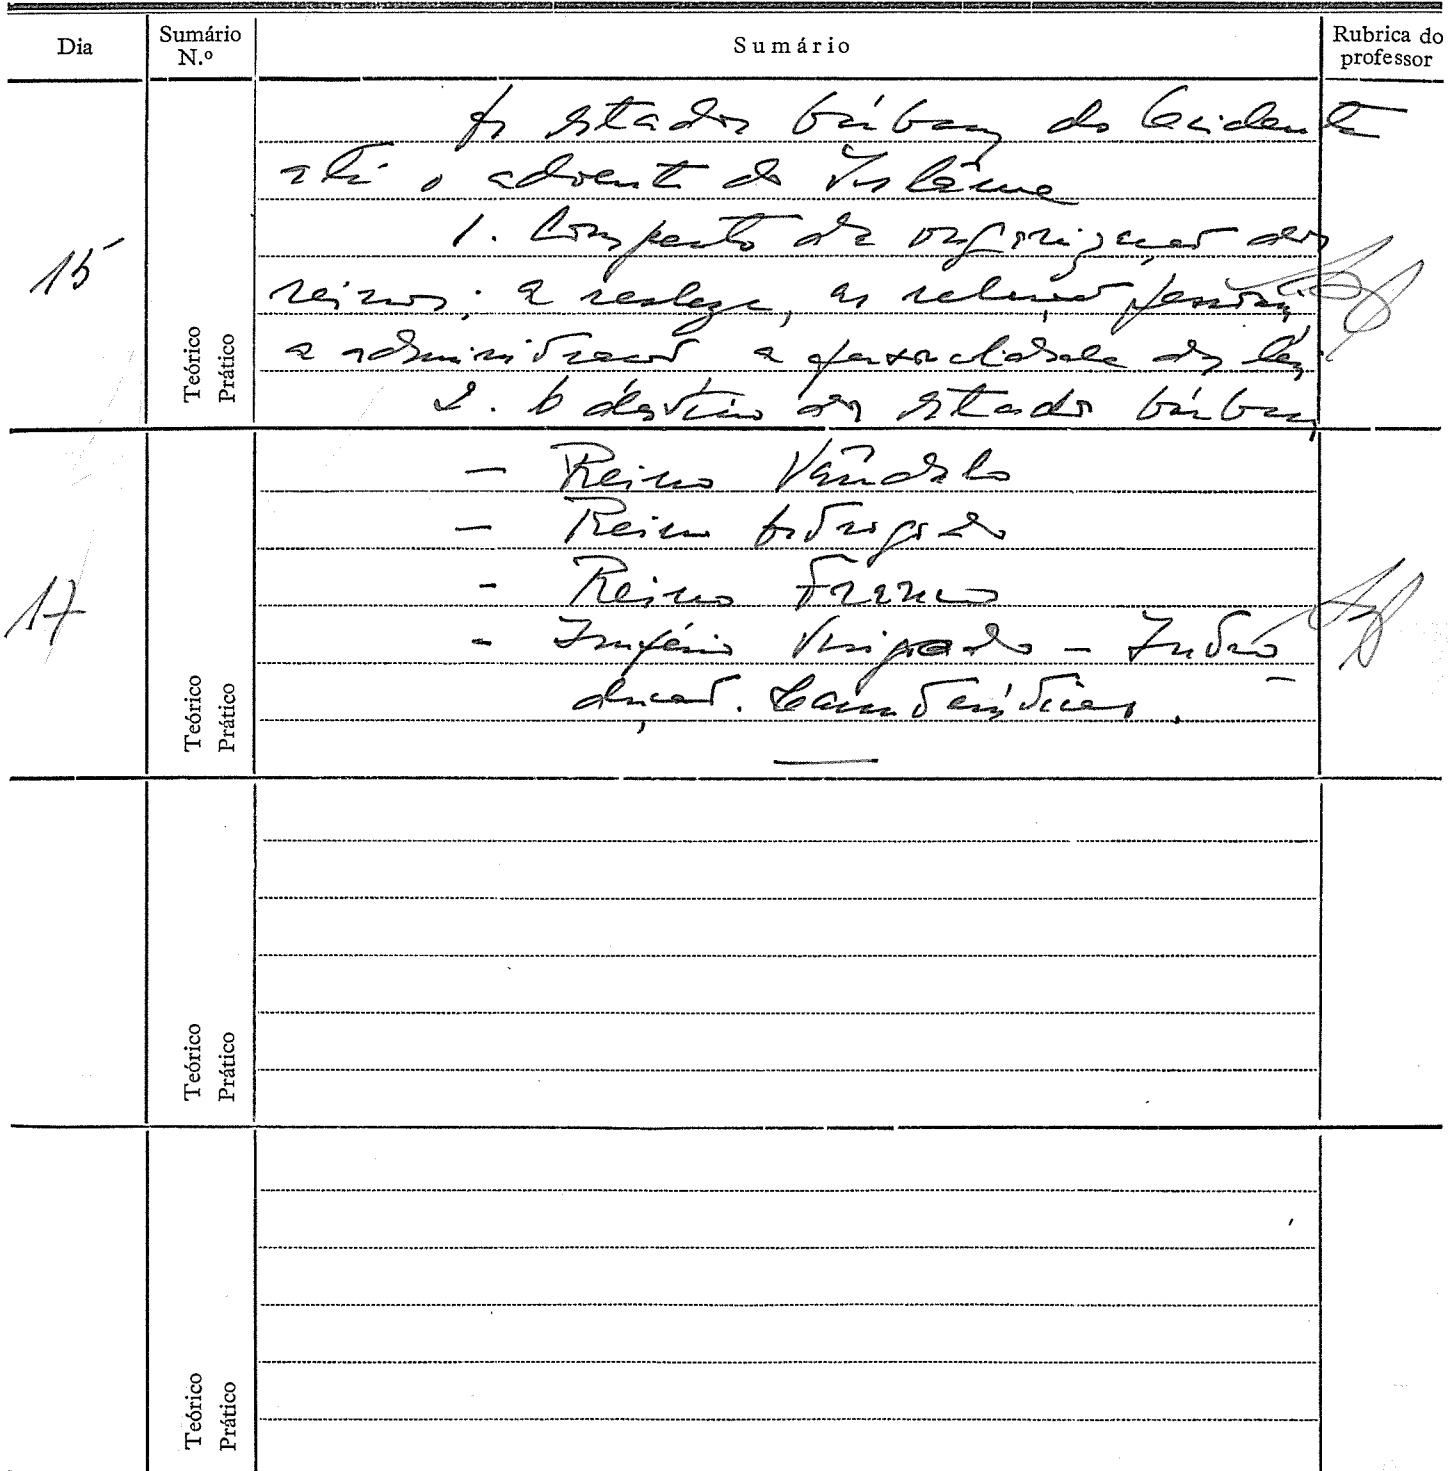 Dia
Sumário N.º
Sumário
Rubrica do professor
15
Teórico
Prático
Os estados bárbaros do Ocidente
até o advento do Islame
1. Conspecto da organização dos
reinos; a realeza, as relações pessoais,
a administração a personalidade das leis
2. O destino dos estados bárbaros
17
Teórico
Prático
- Reino Vândalo
- Reino Ostrogodo
- Reino Franco
- Império Visigodo - Intro
dução. Características.
Teórico
Prático
Teórico
Prático